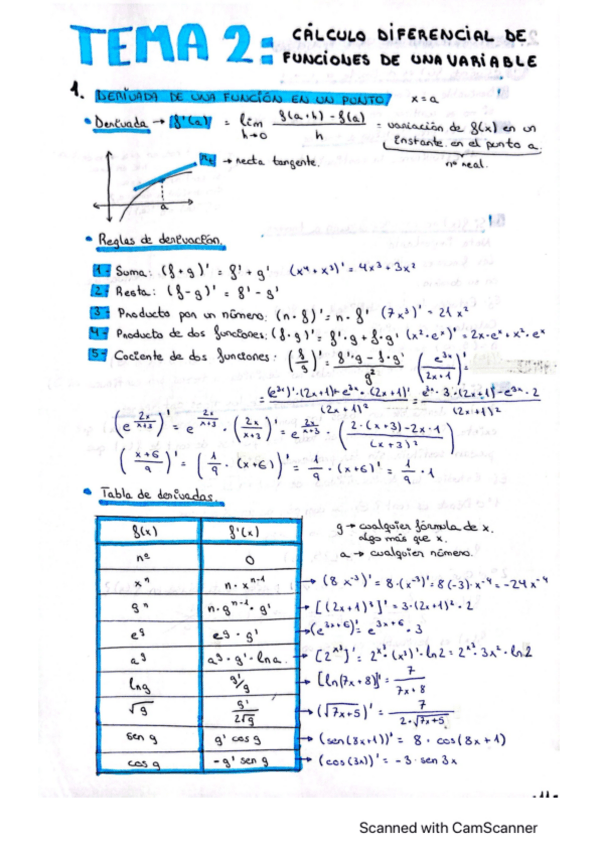 TEMA 2: CÁLCULO DIFERENCIAL DE
FUNCIONES DE UNA VARIABLE
1. DERIVADA DE UNA FUNCIÓN EN UN PUNTO/ x = a
• Derivada → f'(a) = lim h→0 f(a+h) - f(a) / h = variación de f(x) en un
instante en el punto a.
nº real.
→ recta tangente.
a
• Reglas de derivación.
1- Suma: (f + g)' = f' + g' (x⁴ + x³)' = 4x³ + 3x²
2- Resta: (f - g)' = f' - g'
3- Producto por un número: (n · f)' = n · f' (7x³)' = 21x²
4- Producto de dos funciones: (f · g)' = f' · g + f · g' (x² · eˣ)' = 2x · eˣ + x² · eˣ
5- Cociente de dos funciones: (f/g)' = f' · g - f · g' / g² (e³ˣ / 2x+1)' =
= (e³ˣ)' · (2x+1) - e³ˣ · (2x+1)' / (2x+1)² = e³ˣ · 3 · (2x+1) - e³ˣ · 2 / (2x+1)²
(e^(2x/x+3))' = e^(2x/x+3) · (2x/x+3)' = e^(2x/x+3) · (2·(x+3) - 2x·1 / (x+3)²)
(x+6 / 9)' = (1/9 · (x+6))' = 1/9 · (x+6)' = 1/9 · 1
• Tabla de derivadas.
f(x) f'(x)
g → cualquier fórmula de x.
algo más que x.
a → cualquier número.
nº 0
xⁿ n · xⁿ⁻¹ → (8x⁻³)' = 8·(x⁻³)' = 8(-3)·x⁻⁴ = -24x⁻⁴
gⁿ n · gⁿ⁻¹ · g' → [(2x+1)³]' = 3·(2x+1)² · 2
e^g e^g · g' → (e^(3x+6))' = e^(3x+6) · 3
a^g a^g · g' · ln a. → [2^(x³)]' = 2^(x³) · (x³)' · ln2 = 2^(x³) · 3x² · ln2
ln g g'/g → [ln(7x+8)]' = 7 / 7x+8
√g g' / 2√g → (√7x+5)' = 7 / 2·√7x+5
sen g g' cos g → (sen(8x+1))' = 8 · cos(8x+1)
cos g -g' sen g → (cos(3x))' = -3 · sen 3x
Scanned with CamScanner